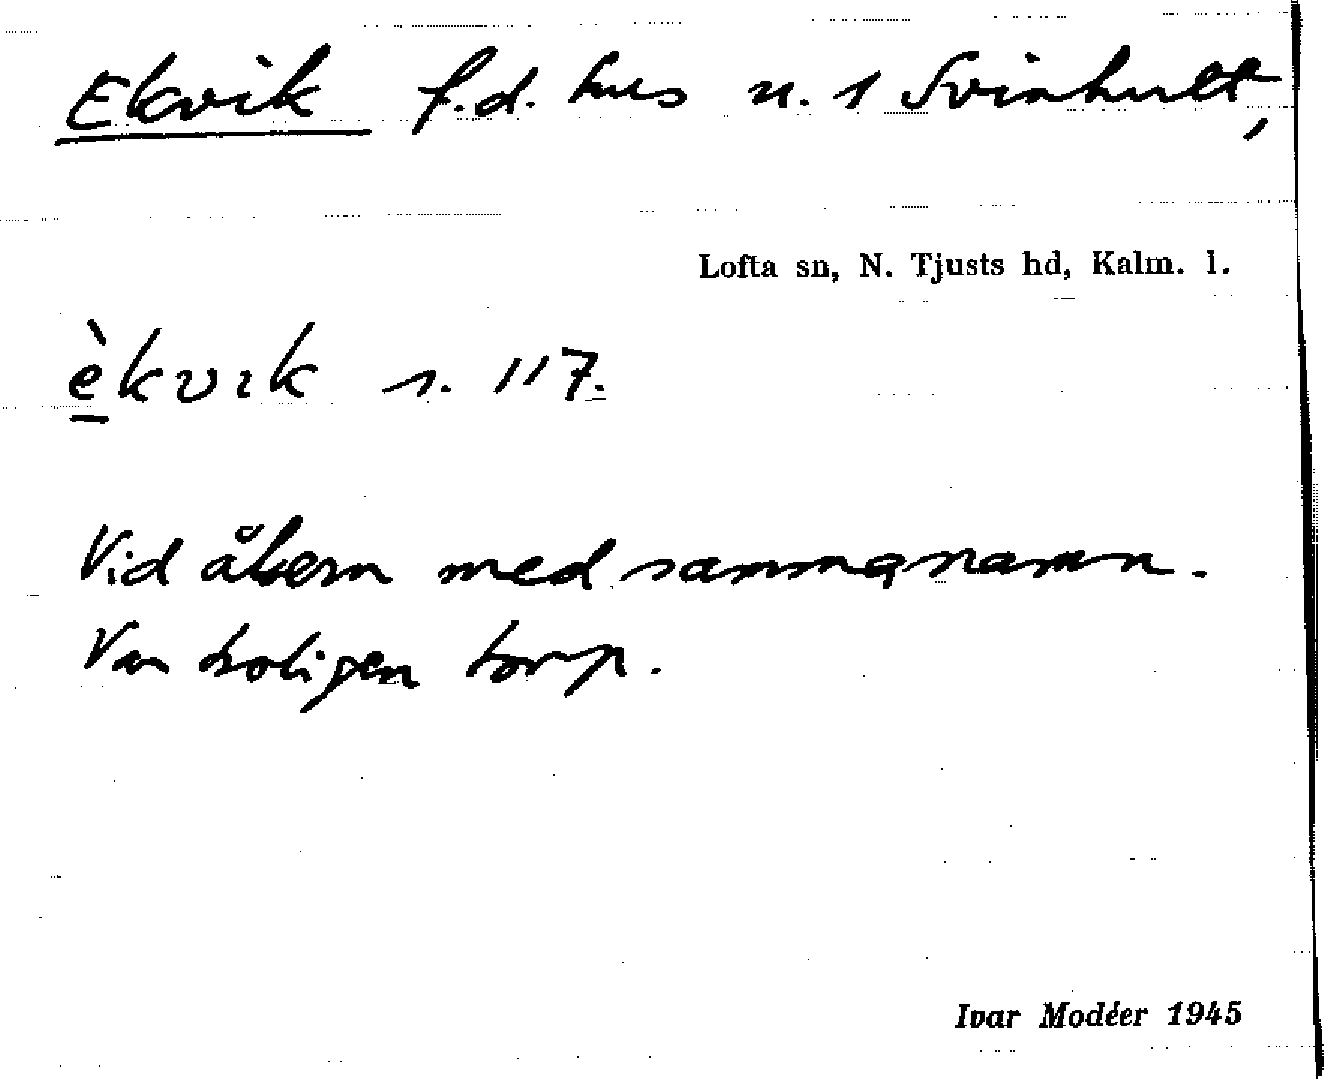 Ekvik f.d. hus u. 1 Svinhult,
Lofta sn, N. Tjusts hd, Kalm. l.
èkvɩk s. 117.
Vid åkern med samma namn.
Var troligen torp.
Ivar Modéer 1945